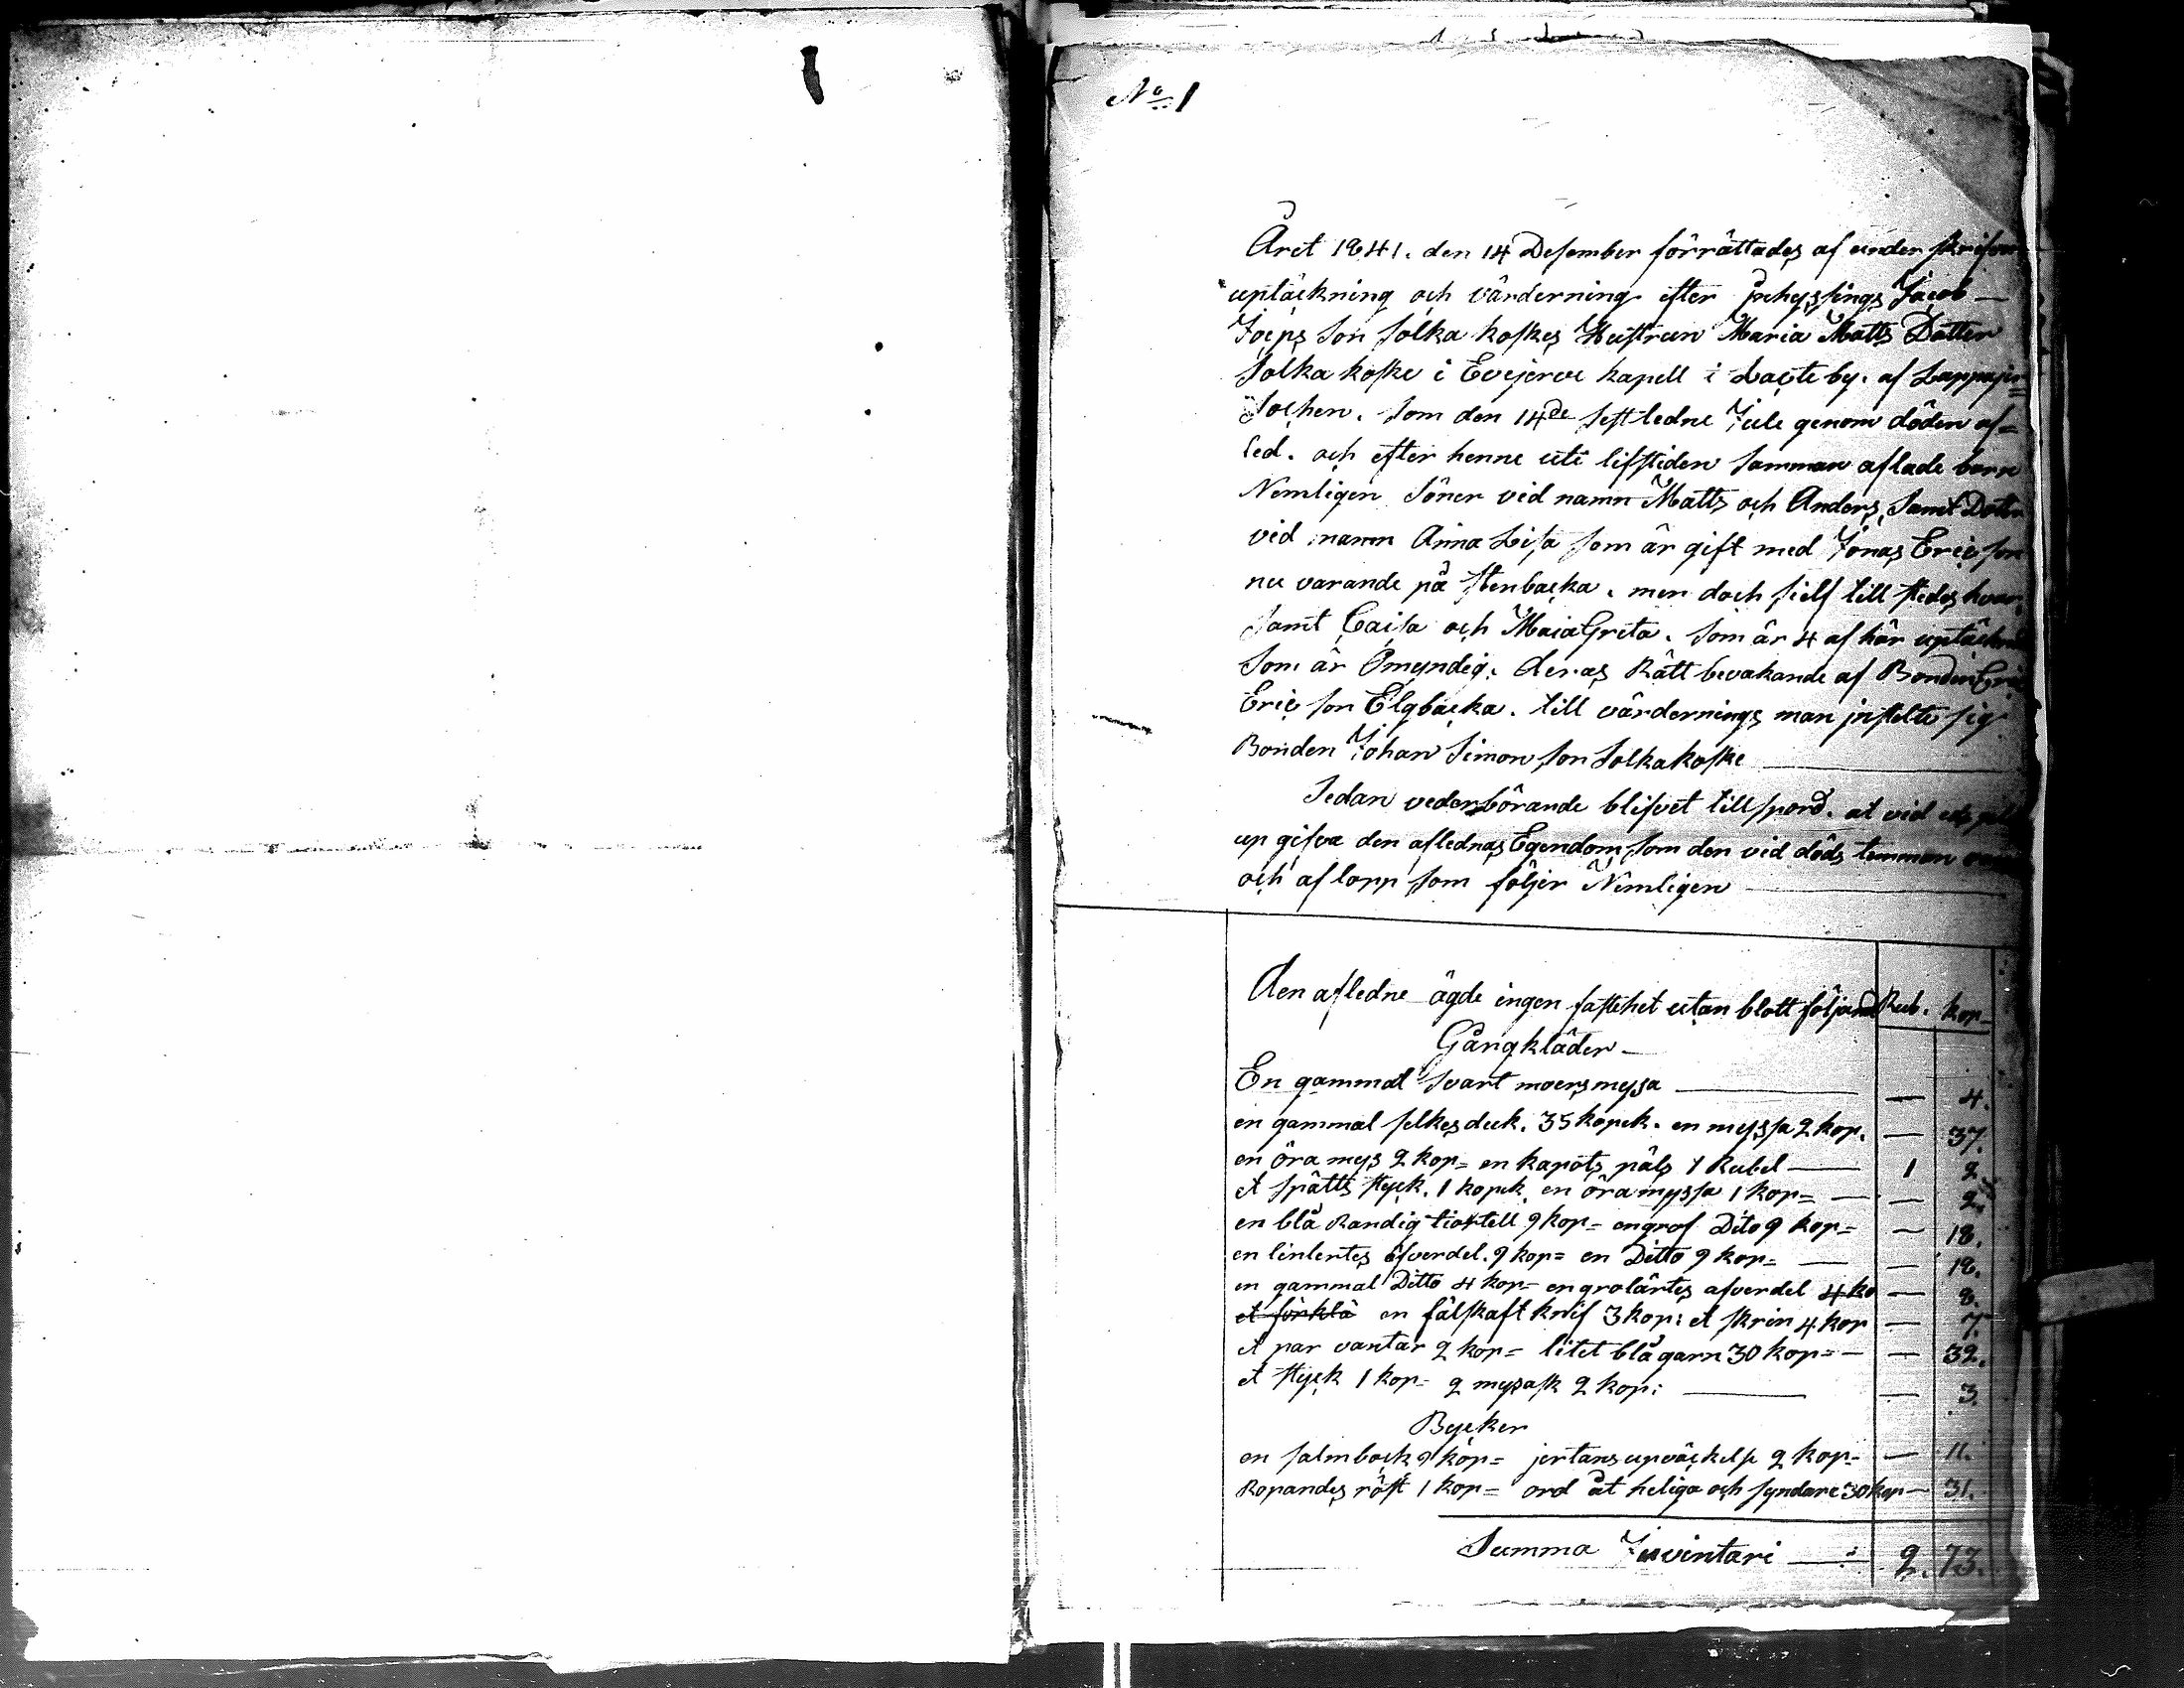 No 1
Året 1841. den 14 Desember förrättades af under skrifven
uptäckning och värderning efter Inhyssings Jacob
Joeps Son Solka koskes Hustrun Maria Matts Dotter
Solka koske i Evijerve kapell i by. af Lappajer=
Sochen. Som den 14de sistledne Jule genom döden af=
led. och efter henne uti lifstiden samman aflade barn
Nemligen Söner vid namn Matts och Anders, samt Dotter
vid namn Anna Lisa som är gift med Jonas Ericson
nu varande på Stenbacka. men doch sielf till stedes
Samt Caisa och MaiaGreta. Som är 4 af här
Som är Omyndig. deras Rätt bevakande af Bonden Eric
Eric son Elgbacka. till värdernings man instelte sig
Bonden Johan Simon son Solkakoske
Sedan vederbörande blifvet till spord. at vid
up gifva den aflednas Egendom som den vid döds
och aflopp som följer Nemligen
Den afledne ägde ingen fastehet utan blott följand Rub. kop
Gångkläder
En gammal svart moersmysa — 4.
en gammal silkesduk. 35 kopek. en myssa 2 kop. — 37.
en öra mys 2 kop= en kapots päls 1 Rubel — 1 2
et spätts styck. 1 kopek. en öramyssa 1 kop= — 2.
en blå Randig tiortell 9 kop= en grof Dito 9 kop= — 18.
en linlertes öfverdel. 9 kop= en Ditto 9 kop= — 18.
en gammal Ditto 4 kop= en grolärtes afverdel 4 ko — 8.
et förklä en fälskaft knif 3 kop: et skrin 4 kop — 7.
et par vantar 2 kop= litet blå garn 30 kop= — 32.
et styck 1 kop= 2 mysask 2 kop: — 3.
Bycker
en salmbock 9 kop= jertans upväckelse 2 kop= — 11.
Ropandes röst 1 kop= ord åt heliga och syndare 30 kop — 31.
Summa Inventari — 2. 73.